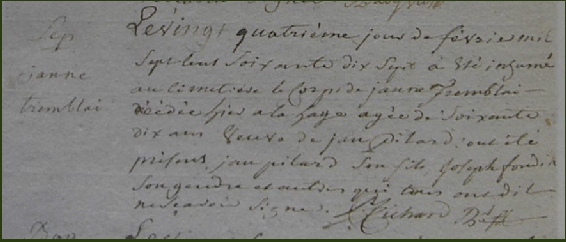 Le vingt quatrième jour de février mil
Sep sept cent soixante dix sept à été inhumé
janne au cimetière le Corps de janne Tremblai
tremblai décédée hier a la haye agée de soixante
dix ans Veuve de jan pilard ont été
présent jan pilard son fils joseph
son gendre et autres qui tous ont dit
ne savoir signer Richard